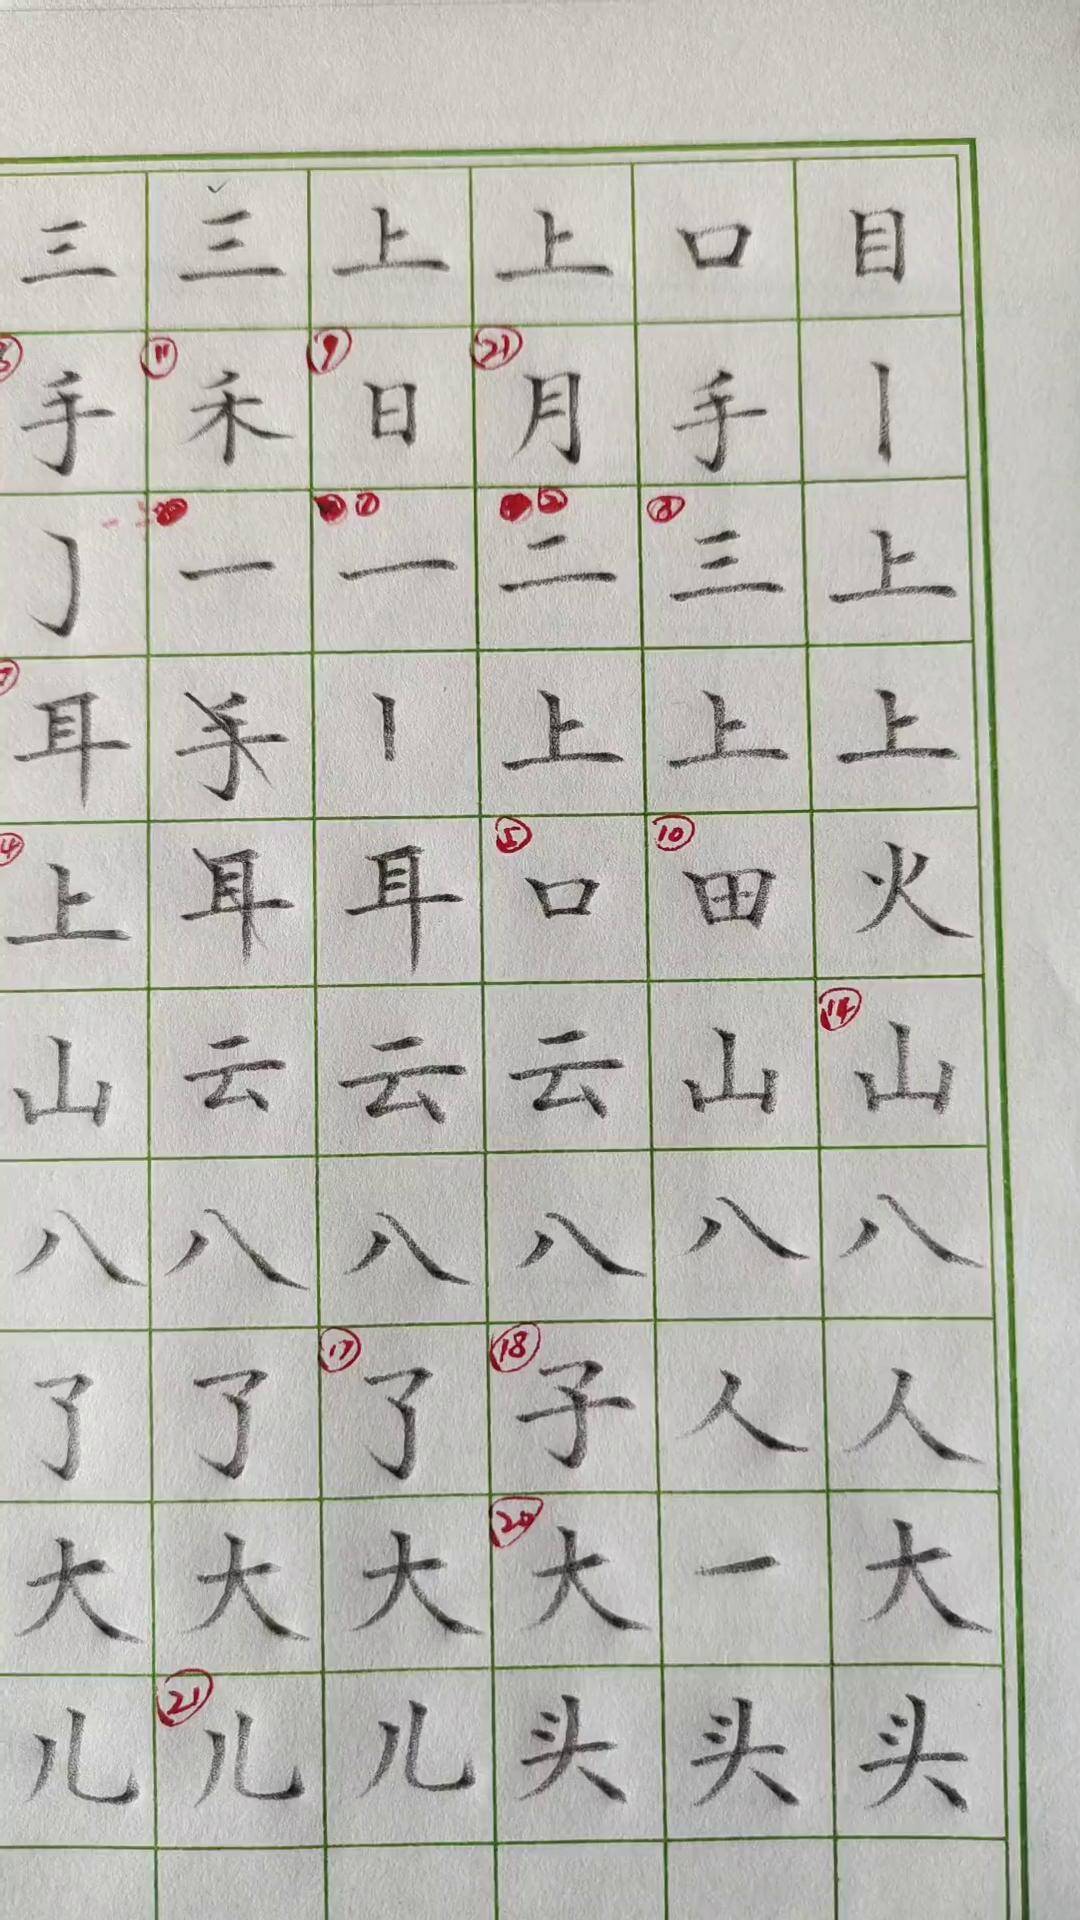 三 三 上 上 口 目
手 ⑪ 禾 ⑨ 日 ㉑ 月 手 丨
亅 一 ① 一 ② 二 ③ 三 上
耳 手 丨 上 上 上
④ 上 耳 耳 ⑤ 口 ⑩ 田 火
山 云 云 云 山 ⑭ 山
八 八 八 八 八 八
了 了 ⑰ 了 ⑱ 子 人 人
大 大 大 ⑳ 大 一 大
儿 ㉑ 儿 儿 头 头 头